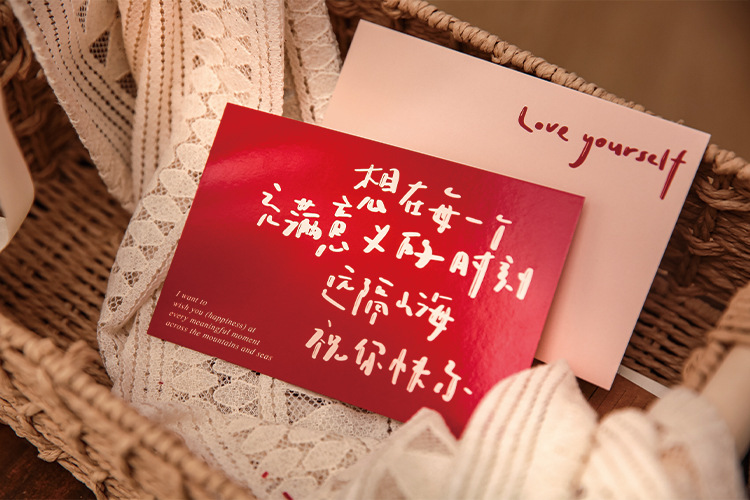 Love yourself
想在每一个
充满意义的时刻
远隔山海
祝你快乐
I want to
wish you (happiness) at
every meaningful moment
across the mountains and seas